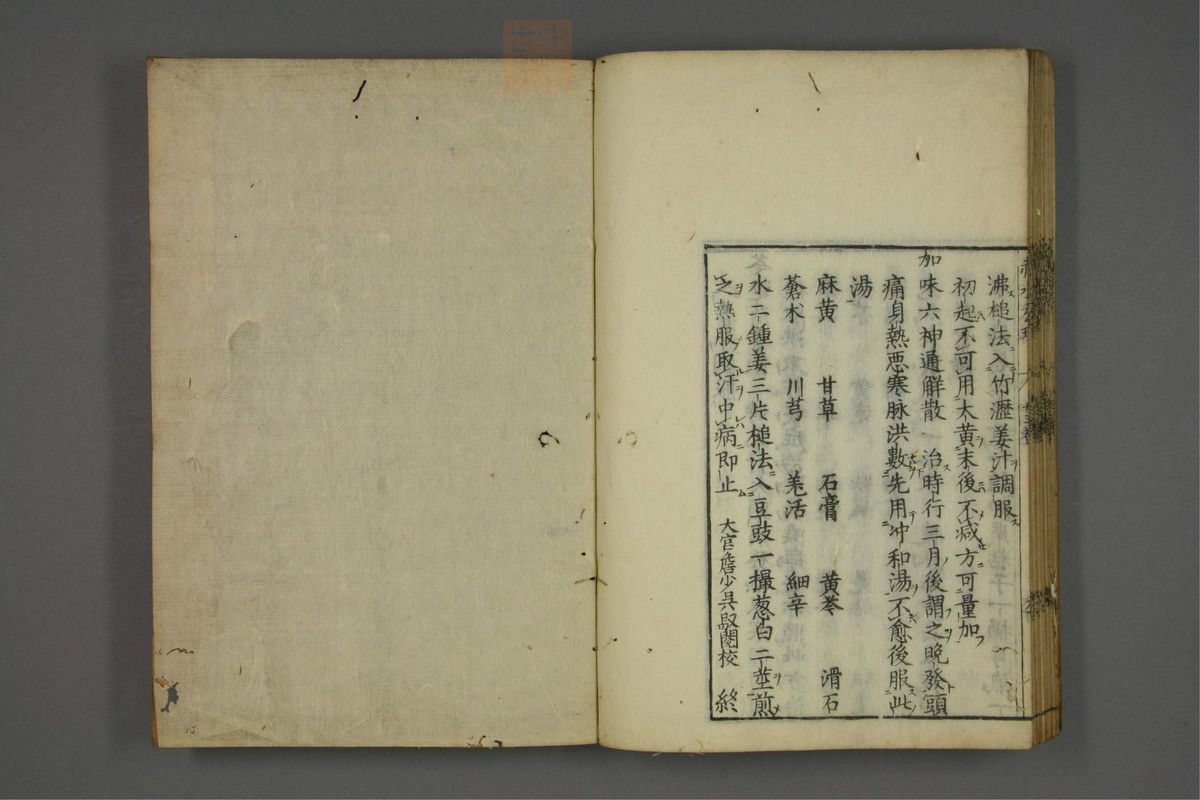 沸槌法入竹瀝姜汁調服
初起不可用大黄末後不减方可量加
加味六神通解散一治時行三月後謂之晩發頭
痛身熱悪寒脉洪數先用冲和湯不愈後服此
湯
麻黄 甘草 石膏 黄芩 滑石
蒼术 川芎 羌活 細辛
水二鍾姜三片槌法入豆豉一撮葱白二莖煎
之熱服取汗中病即止 大官詹少吳叚閣校 終